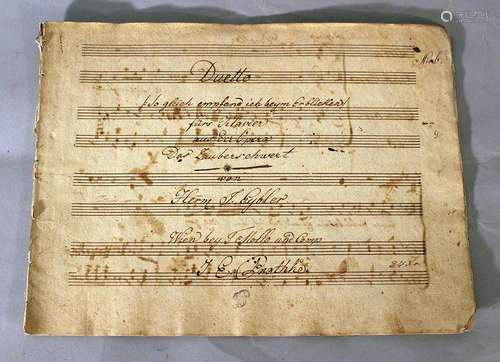 No. 6.
Duetto
(So gleich empfand ich beym Erblicken)
fürs Klavier
aus der Opera
Das Zauberschwert
von
Herrn J. Eybler
Wien bey T. Mollo und Comp.
24 x.